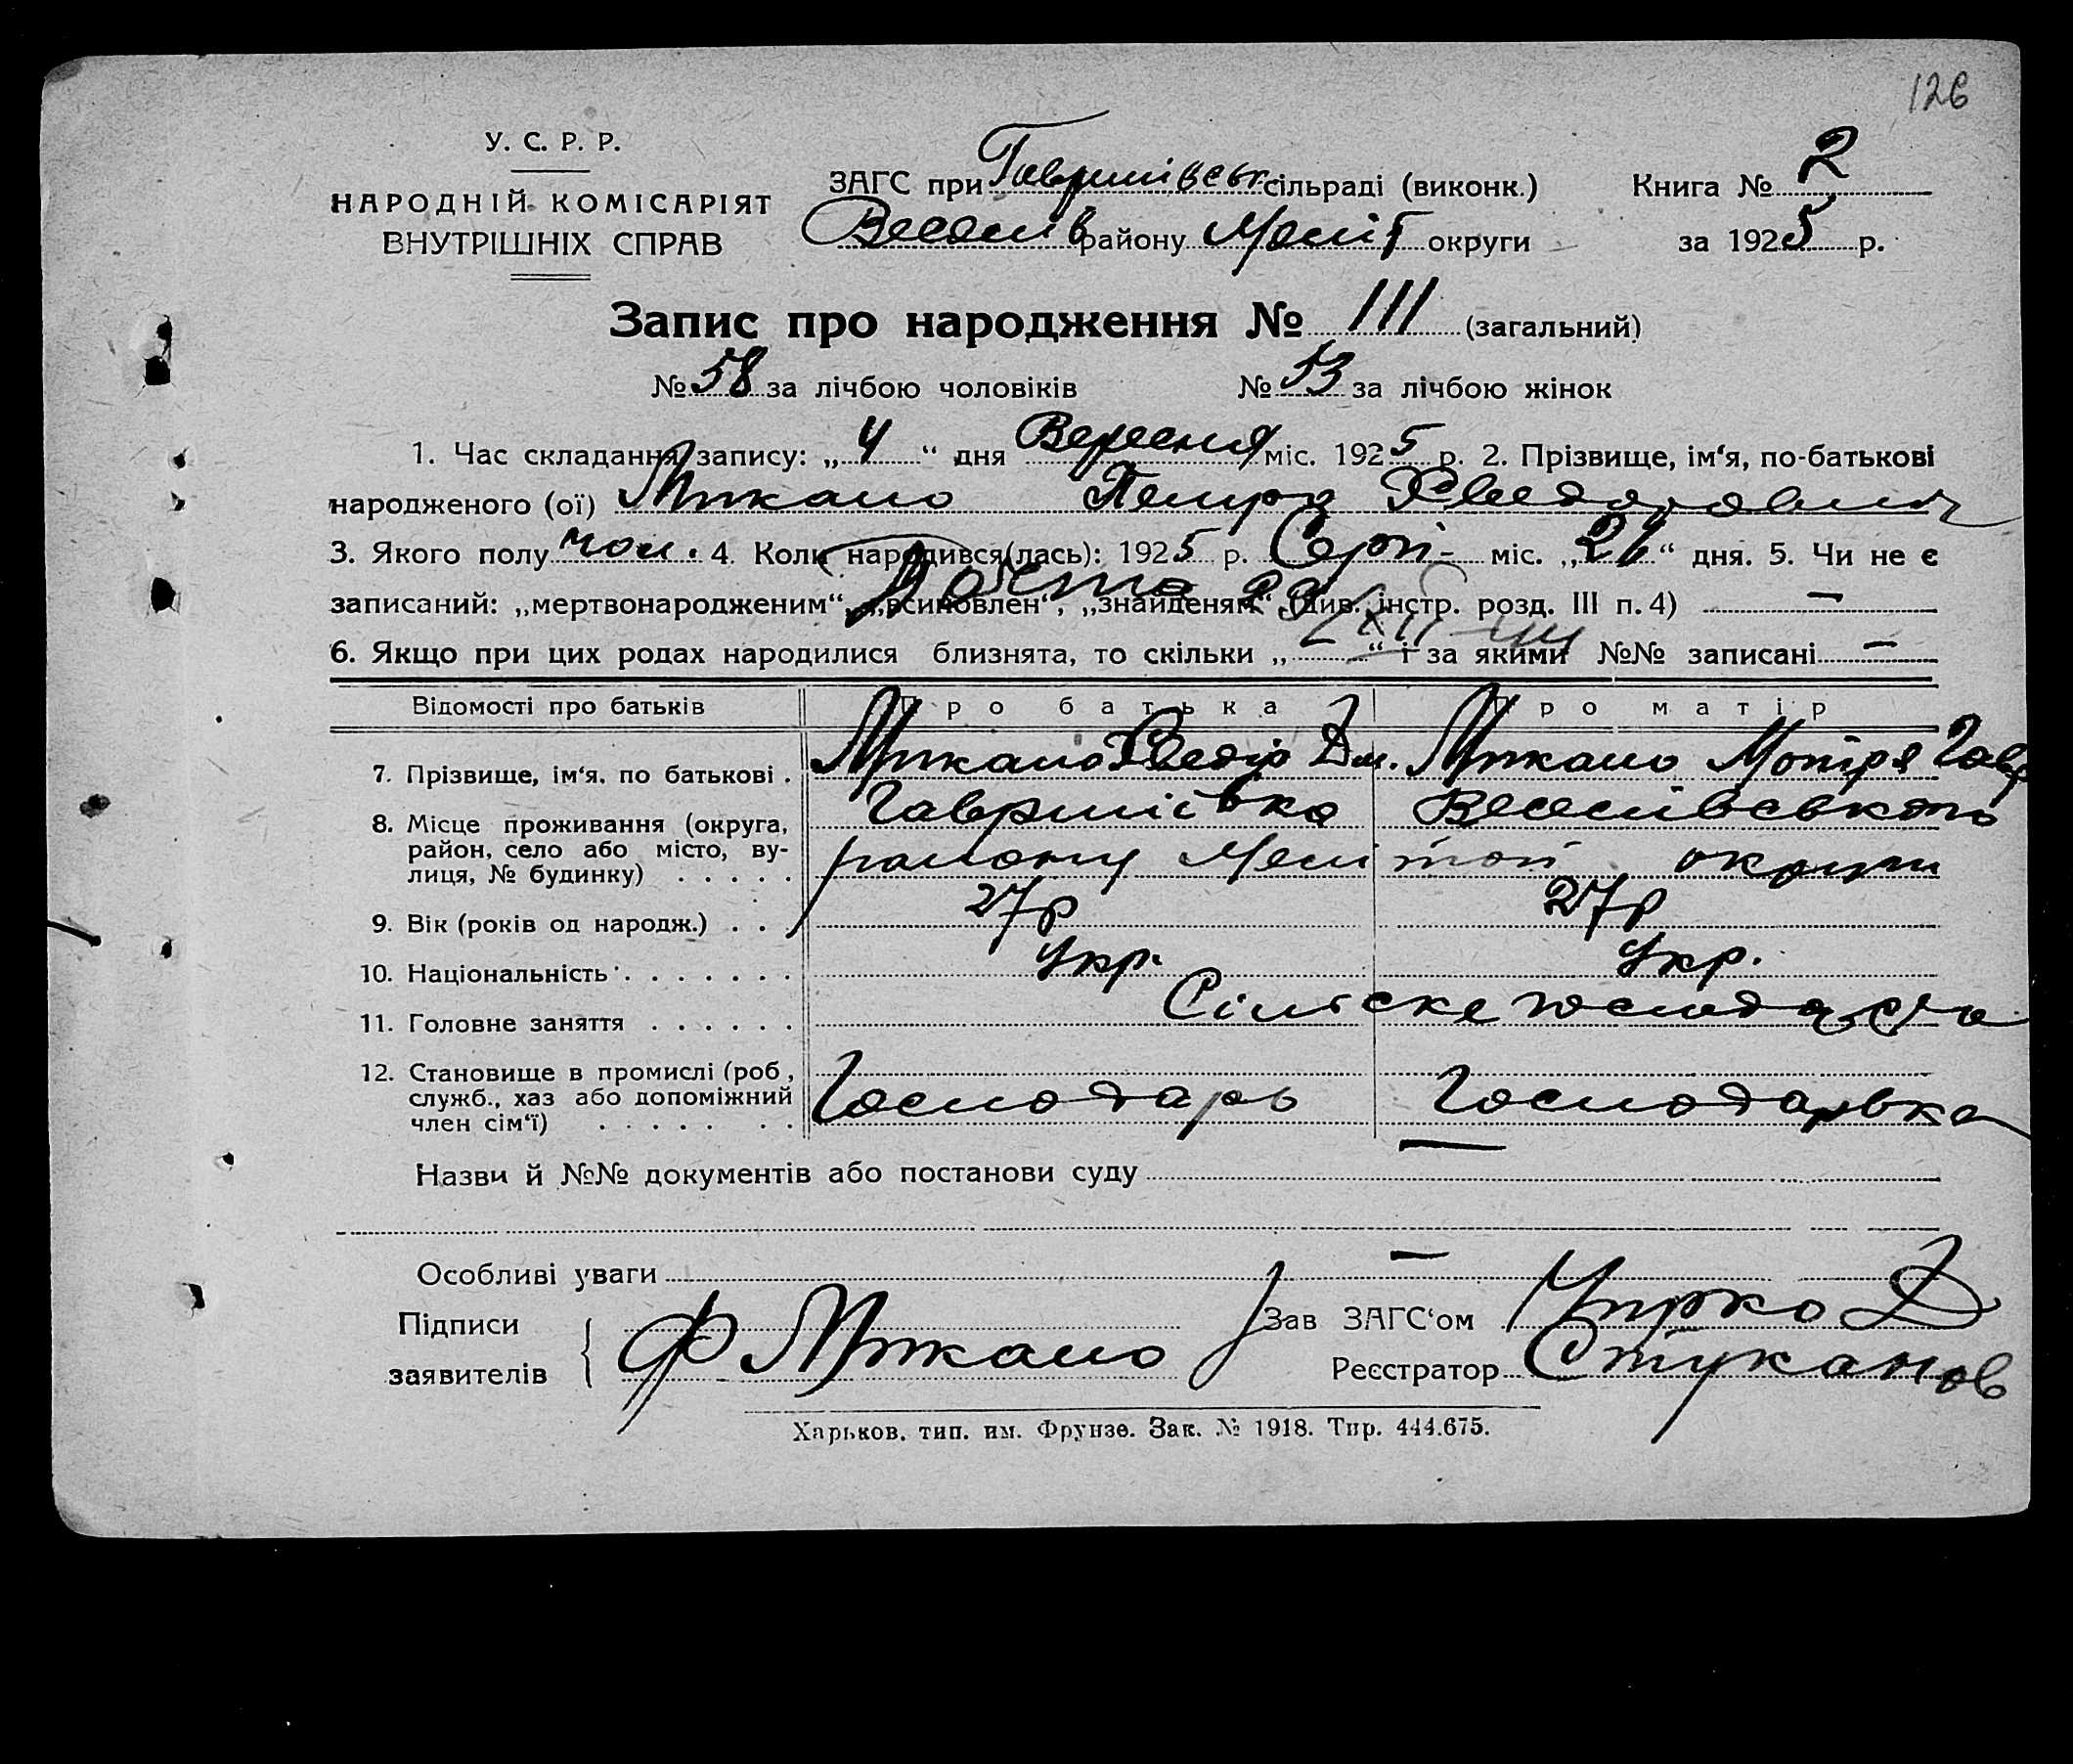 126
У. С. Р. Р.
НАРОДНІЙ КОМІСАРІЯТ
ВНУТРІШНІХ СПРАВ
ЗАГС при Гаврилівськ сільраді (виконк.)
Веселів району Меліт округи
Книга № 2
за 1925 р.
Запис про народження № 111 (загальний)
№ 58 за лічбою чоловіків № 53 за лічбою жінок
1. Час складання запису: „4“ дня Вересня міс. 1925 р. 2. Прізвище, ім‘я, по-батькові
народженого (ої) Петро Федорович
3. Якого полу чол. 4. Коли народився(лась): 1925 р. Серп- міс. „ “ дня. 5. Чи не є
записаний: „мертвонародженим“, „всиновлен“, „знайденям“ (див. інстр. розд. III п. 4) —
6. Якщо при цих родах народилися близнята, то скільки „—“ і за якими №№ записані —
Відомості про батьків Про батька Про матір
7. Прізвище, ім‘я, по батькові . Федір Дм. Мотря Гавр
8. Місце проживання (округа, район, село або місто, ву-
лиця, № будинку) . . . . . Гаврилівка Веселівського
району Мелітоп округи
9. Вік (років од народж.) . . 27р 27р
10. Національність . . . . . . . Укр. Укр.
11. Головне заняття . . . . . . Сільске
12. Становище в промислі (роб,
служб., хаз або допоміжний
член сім‘ї) . . . . . . . Господарь Господарька
Назви й №№ документів або постанови суду —
Особливі уваги —
Підписи
заявителів Ф
Зав ЗАГС‘ом Д
Реєстратор Стуканов
Харьков. тип. им. Фрунзе. Зак. № 1918. Тир. 444.675.